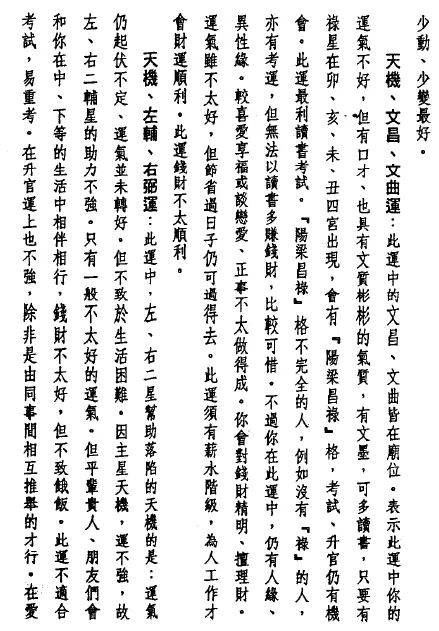 少動、少變最好。
天機、文昌、文曲運：此運中的文昌、文曲皆在廟位。表示此運中你的
運氣不好，但有口才、也具有文質彬彬的氣質，有文墨，可多讀書，只要有
祿星在卯、亥、未、丑四宮出現，會有『陽梁昌祿』格，考試、升官仍有機
會。此運最利讀書考試。『陽梁昌祿』格不完全的人，例如沒有『祿』的人，
亦有考運，但無法以讀書多賺錢財，比較可惜。不過你在此運中，仍有人緣、
異性緣。較喜愛享福或談戀愛、正事不太做得成。你會對錢財精明、擅理財。
運氣雖不太好，但節省過日子仍可過得去。此運須有薪水階級，為人工作才
會財運順利。此運錢財不太順利。
天機、左輔、右弼運：此運中，左、右二星幫助落陷的天機的是：運氣
仍起伏不定、運氣並未轉好。但不致於生活困難。因主星天機，運不強，故
左、右二輔星的助力不強。只有一般不太好的運氣。但平輩貴人、朋友們會
和你在中、下等的生活中相伴相行，錢財不太好，但不致餓飯。此運不適合
考試，易重考。在升官運上也不強，除非是由同事間相互推舉的才行。在愛